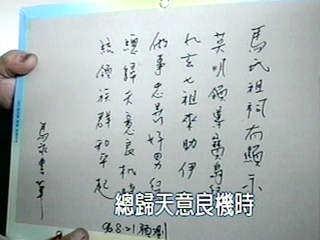 馬氏祖祠有顯示
英明領導寶島
九玄七祖來助伊
做事忠 好男
總歸天意良機時
統領族群和平起
馬 筆
96.8.21
總歸天意良機時